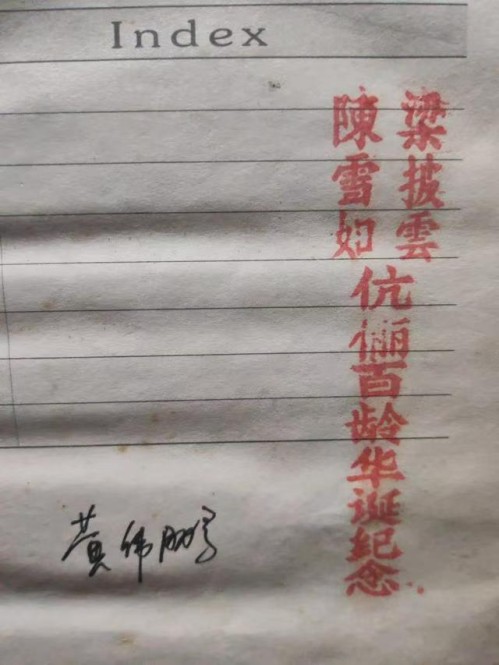 Index
梁披雲
陳雪如
伉儷百龄华诞纪念
黄伟鹏